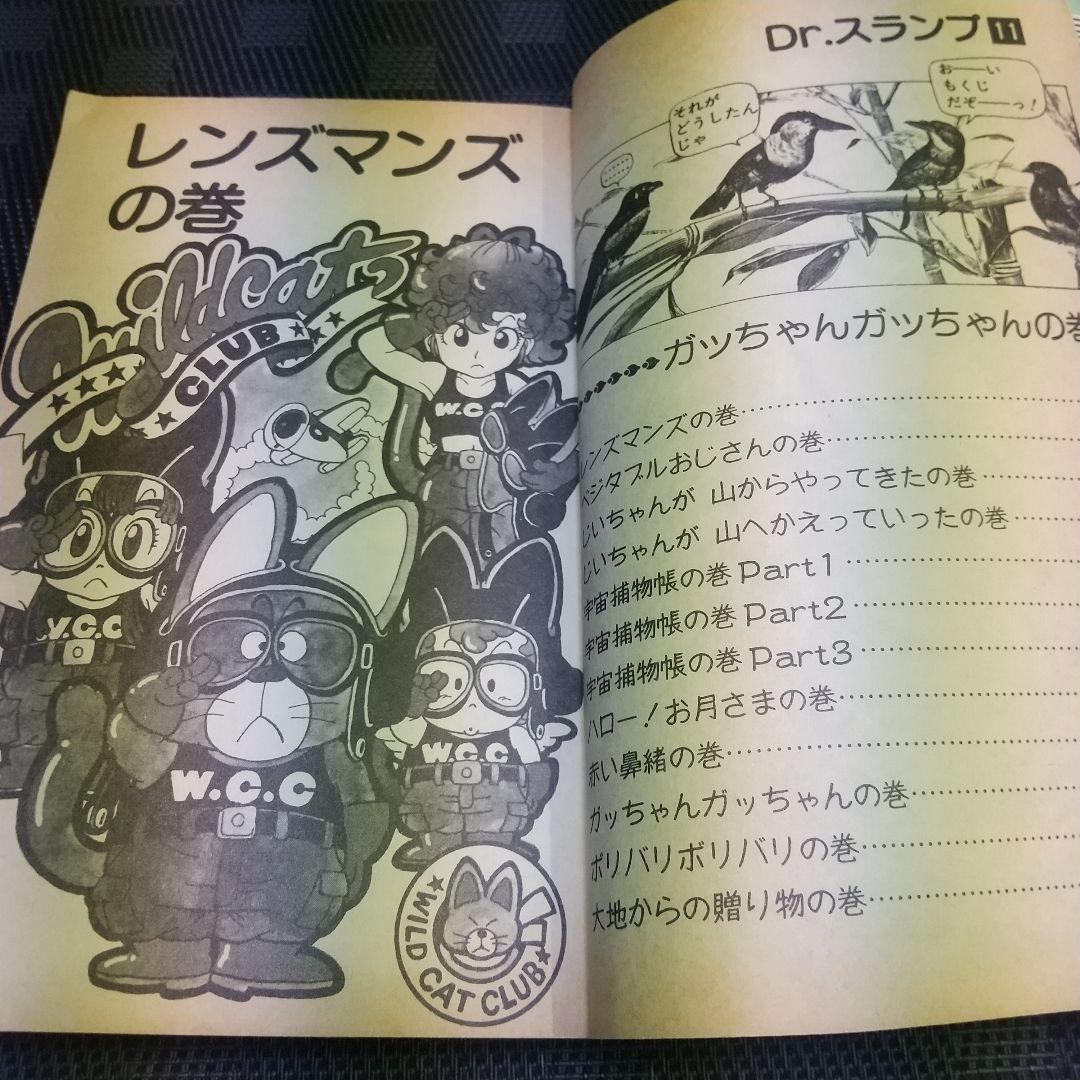 レンズマンズ
の巻
Wildcats
CLUB
W.C.C
V.C.C
W.C.C
W.C.C
WILD CAT CLUB
Dr.スランプ 11
お――い
もくじ
だぞ――っ!
それが
どうしたん
じゃ
…………
ガッちゃんガッちゃんの巻
レンズマンズの巻
ベジタブルおじさんの巻
じいちゃんが 山からやってきたの巻
じいちゃんが 山へかえっていったの巻
宇宙捕物帳の巻 Part1
宇宙捕物帳の巻 Part2
宇宙捕物帳の巻 Part3
ハロー!お月さまの巻
赤い鼻緒の巻
ガッちゃんガッちゃんの巻
ボリバリボリバリの巻
大地からの贈り物の巻